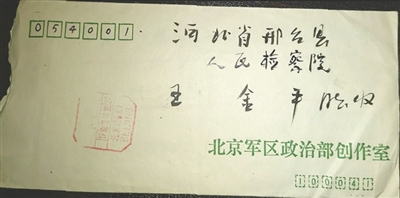 054001
河北省邢台县
人民检察院
王金平 收
北京军区政治部创作室
100041